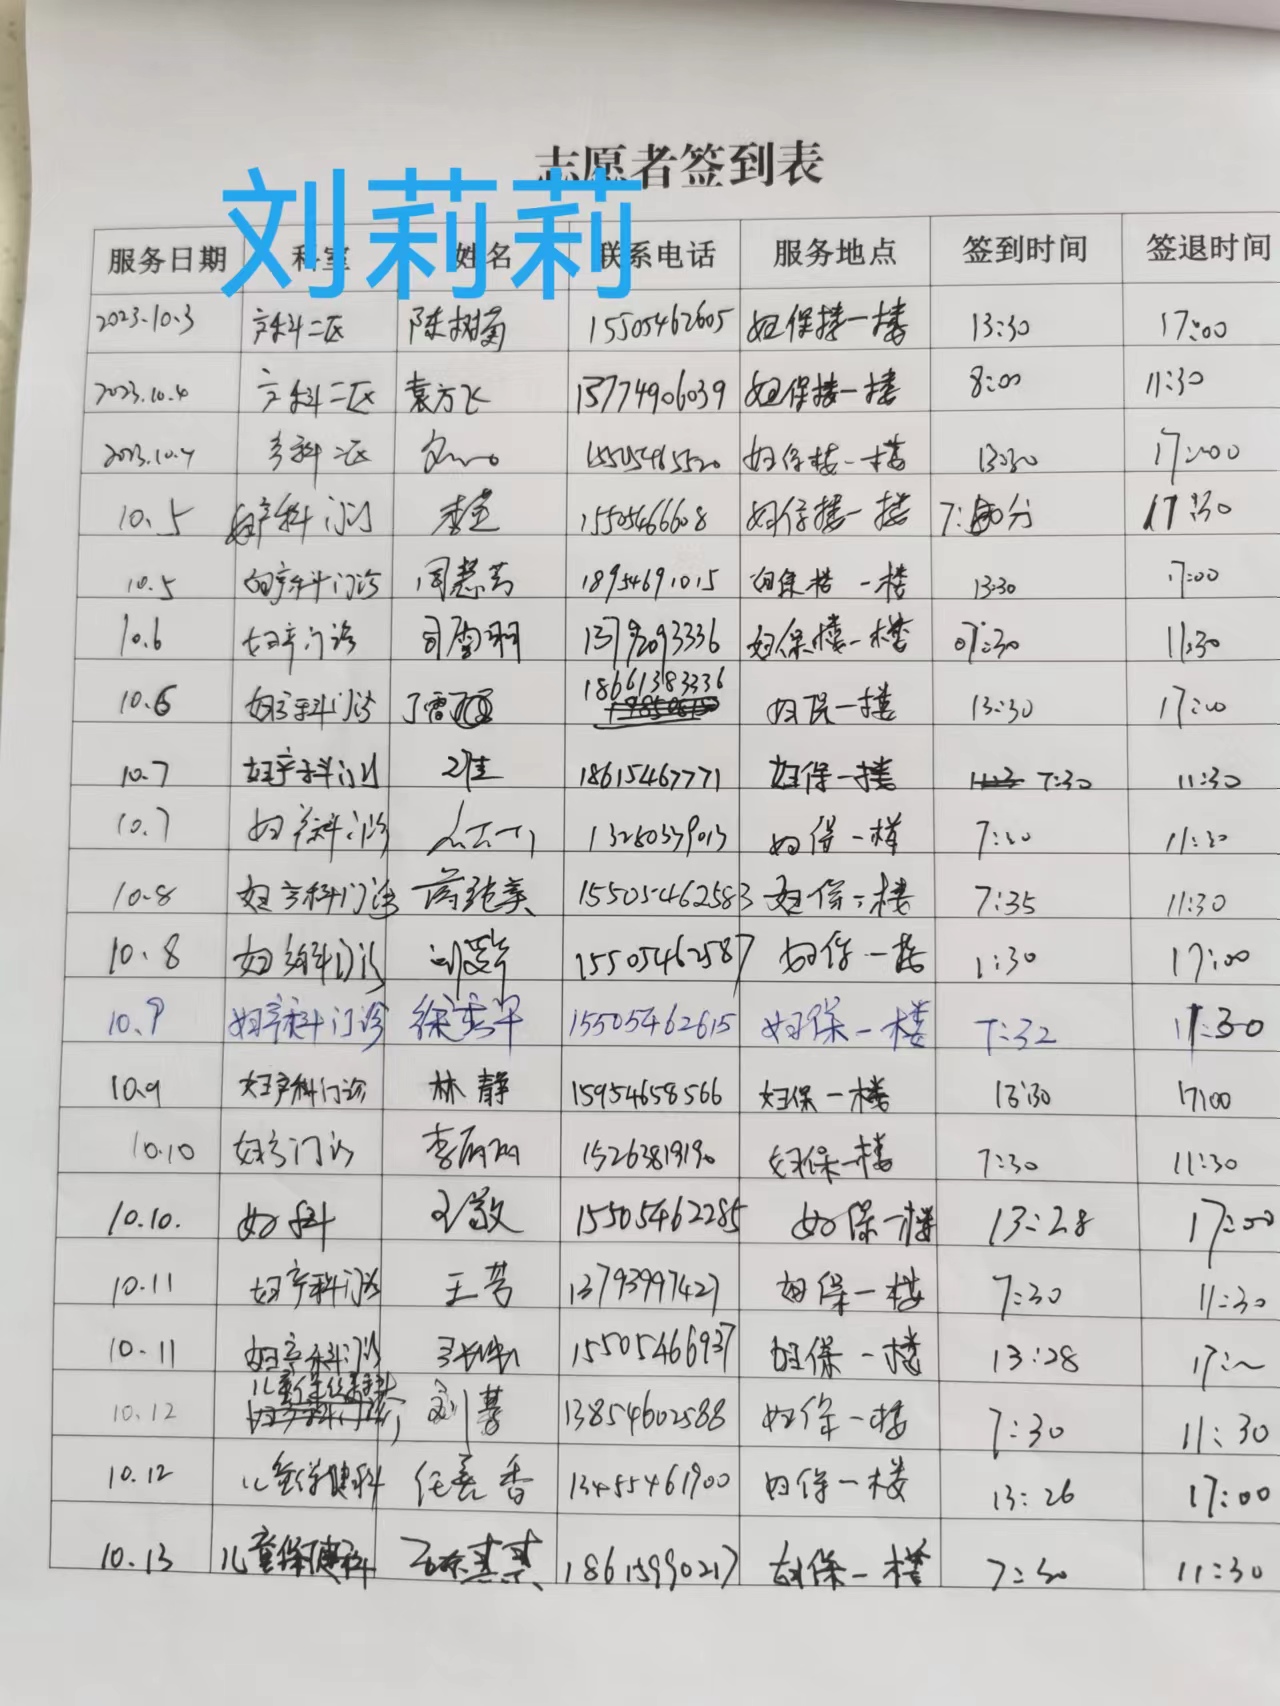 志愿者签到表
刘莉莉
服务日期 科室 姓名 联系电话 服务地点 签到时间 签退时间
2023.10.3 产科二区 陈树菊 15505462605 妇保楼一楼 13:30 17:00
2023.10.4 产科二区 袁方飞 13774906039 妇保楼一楼 8:00 11:30
2023.10.4 产科二区 15505465520 妇保楼一楼 13:30 17:00
10.5 妇产科门诊 15505466608 妇保楼一楼 17:30
10.5 妇产科门诊 周慧芳 18954691015 妇保楼一楼 13:30 17:00
10.6 妇产门诊 司雪羽 13792093336 妇保楼一楼 07:30 11:30
10.6 妇产科门诊 18661383336 妇保一楼 13:30 17:00
10.7 妇产科门诊 18615467771 妇保一楼 7:30 11:30
10.7 妇产科门诊 13280379013 妇保一楼 7:30 11:30
10.8 妇产科门诊 155054462583 妇保一楼 7:35 11:30
10.8 妇产科门诊 15505462587 妇保一楼 1:30 17:00
10.9 妇产科门诊 徐秀平 15505462615 妇保一楼 7:32 11:30
10.9 妇产科门诊 林静 15954658566 妇保一楼 13:30 17:00
10.10 妇产门诊 李丽丽 15263819190 妇保一楼 7:30 11:30
10.10. 妇科 王敬 15505462285 妇保一楼 13:28 17:00
10.11 妇产科门诊 王芳 13793997427 妇保一楼 7:30 11:30
10.11 妇产科门诊 15505466937 妇保一楼 13:28 17:
10.12 儿童保健科 刘 13854602588 妇保一楼 7:30 11:30
10.12 儿童保健科 任 香 13455461900 妇保一楼 13:26 17:00
10.13 儿童保健科 18615990217 妇保一楼 7:30 11:30